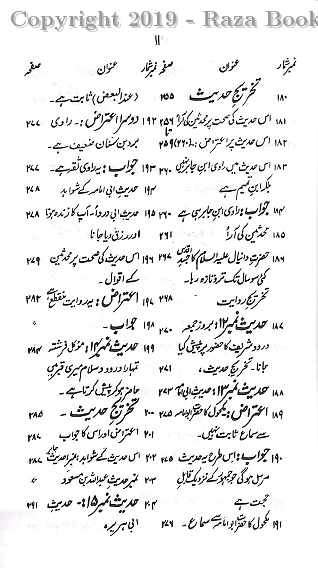 Copyright 2019 - Raza Book
۱۱
نمبر شمار عنوان صفحہ
۱۸۰ تخریج حدیث ۲۵۵
۱۸۱ اس حدیث کی صحت پر محدثین کی آراء ۲۵۶ تا
۱۸۲ اس حدیث پر اعتراض: ۲۵۹
۱۸۳ اس حدیث میں راوی ابن جابر نہیں ۲۶۰
بلکہ ابن تمیم ہے
۱۸۴ جواب: راوی ابن جابر ہی ہے ۲۶۰
۱۸۵ محدثین کی آراء ۲۶۱
۱۸۶ حضرت دانیال علیہ السلام کا جسد اقدس ۲۶۷
کئی سو سال تک تروتازہ رہا۔
تخریج روایت ۲۶۸
۱۸۷ حدیث نمبر ۱۲: بروز جمعہ ۲۷۰
درود شریف کا حضور پر پیش کیا
جانا۔ تخریج حدیث، ۲۷۱
۱۸۸ حدیث نمبر ۱۳: ۲۷۳
۱۸۹ اعتراض: مکحول کا حضرت ابو امامہ ۲۷۵
سے سماع ثابت نہیں۔
۱۹۰ جواب: اس طرح یہ حدیث ۲۷۵
مرسل ہوگی جو جمہور کے نزدیک قابل
حجت ہے
۱۹۱ مکحول کا حضرت ابو امامہ سے سماع۔ ۲۷۶
نمبر شمار عنوان صفحہ
(عند البعض) ثابت ہے۔
۱۹۲ دوسرا اعتراض:۔ راوی ۲۷۷
برد بن سنان ضعیف ہے۔
۱۹۳ جواب: یہ راوی ثقہ ہے۔ ۲۷۷
۱۹۴ حدیث ابی امامہ کے شواہد ۲۷۸
۱۹۵ حدیث ابی درداء، آپ کا زندہ ہونا ۲۷۸
اور رزق دیا جانا
۱۹۶ اس حدیث کی صحت پر محدثین ۲۷۹
کے اقوال۔
۱۹۷ اعتراض: یہ روایت منقطع ہے ۲۸۲
۱۹۸ جواب۔ 〃
۱۹۹ حدیث نمبر ۱۴: مؤکل فرشتہ ۲۸۴
تمہارا درود و سلام میری قبر میں
حاضر ہو کر پیش کرتا ہے۔
۲۰۰ تخریج حدیث۔ ۲۸۵
۲۰۱ اعتراض اور اس کا جواب 〃
۲۰۲ اس حدیث کے شواہد: نمبر۱ حدیث ۲۸۷
۲۰۳ نمبر حدیث عبد اللہ بن مسعود
۲۰۴ حدیث نمبر ۱۵:۔ حدیث ۲۹۱
ابی ہریرہ